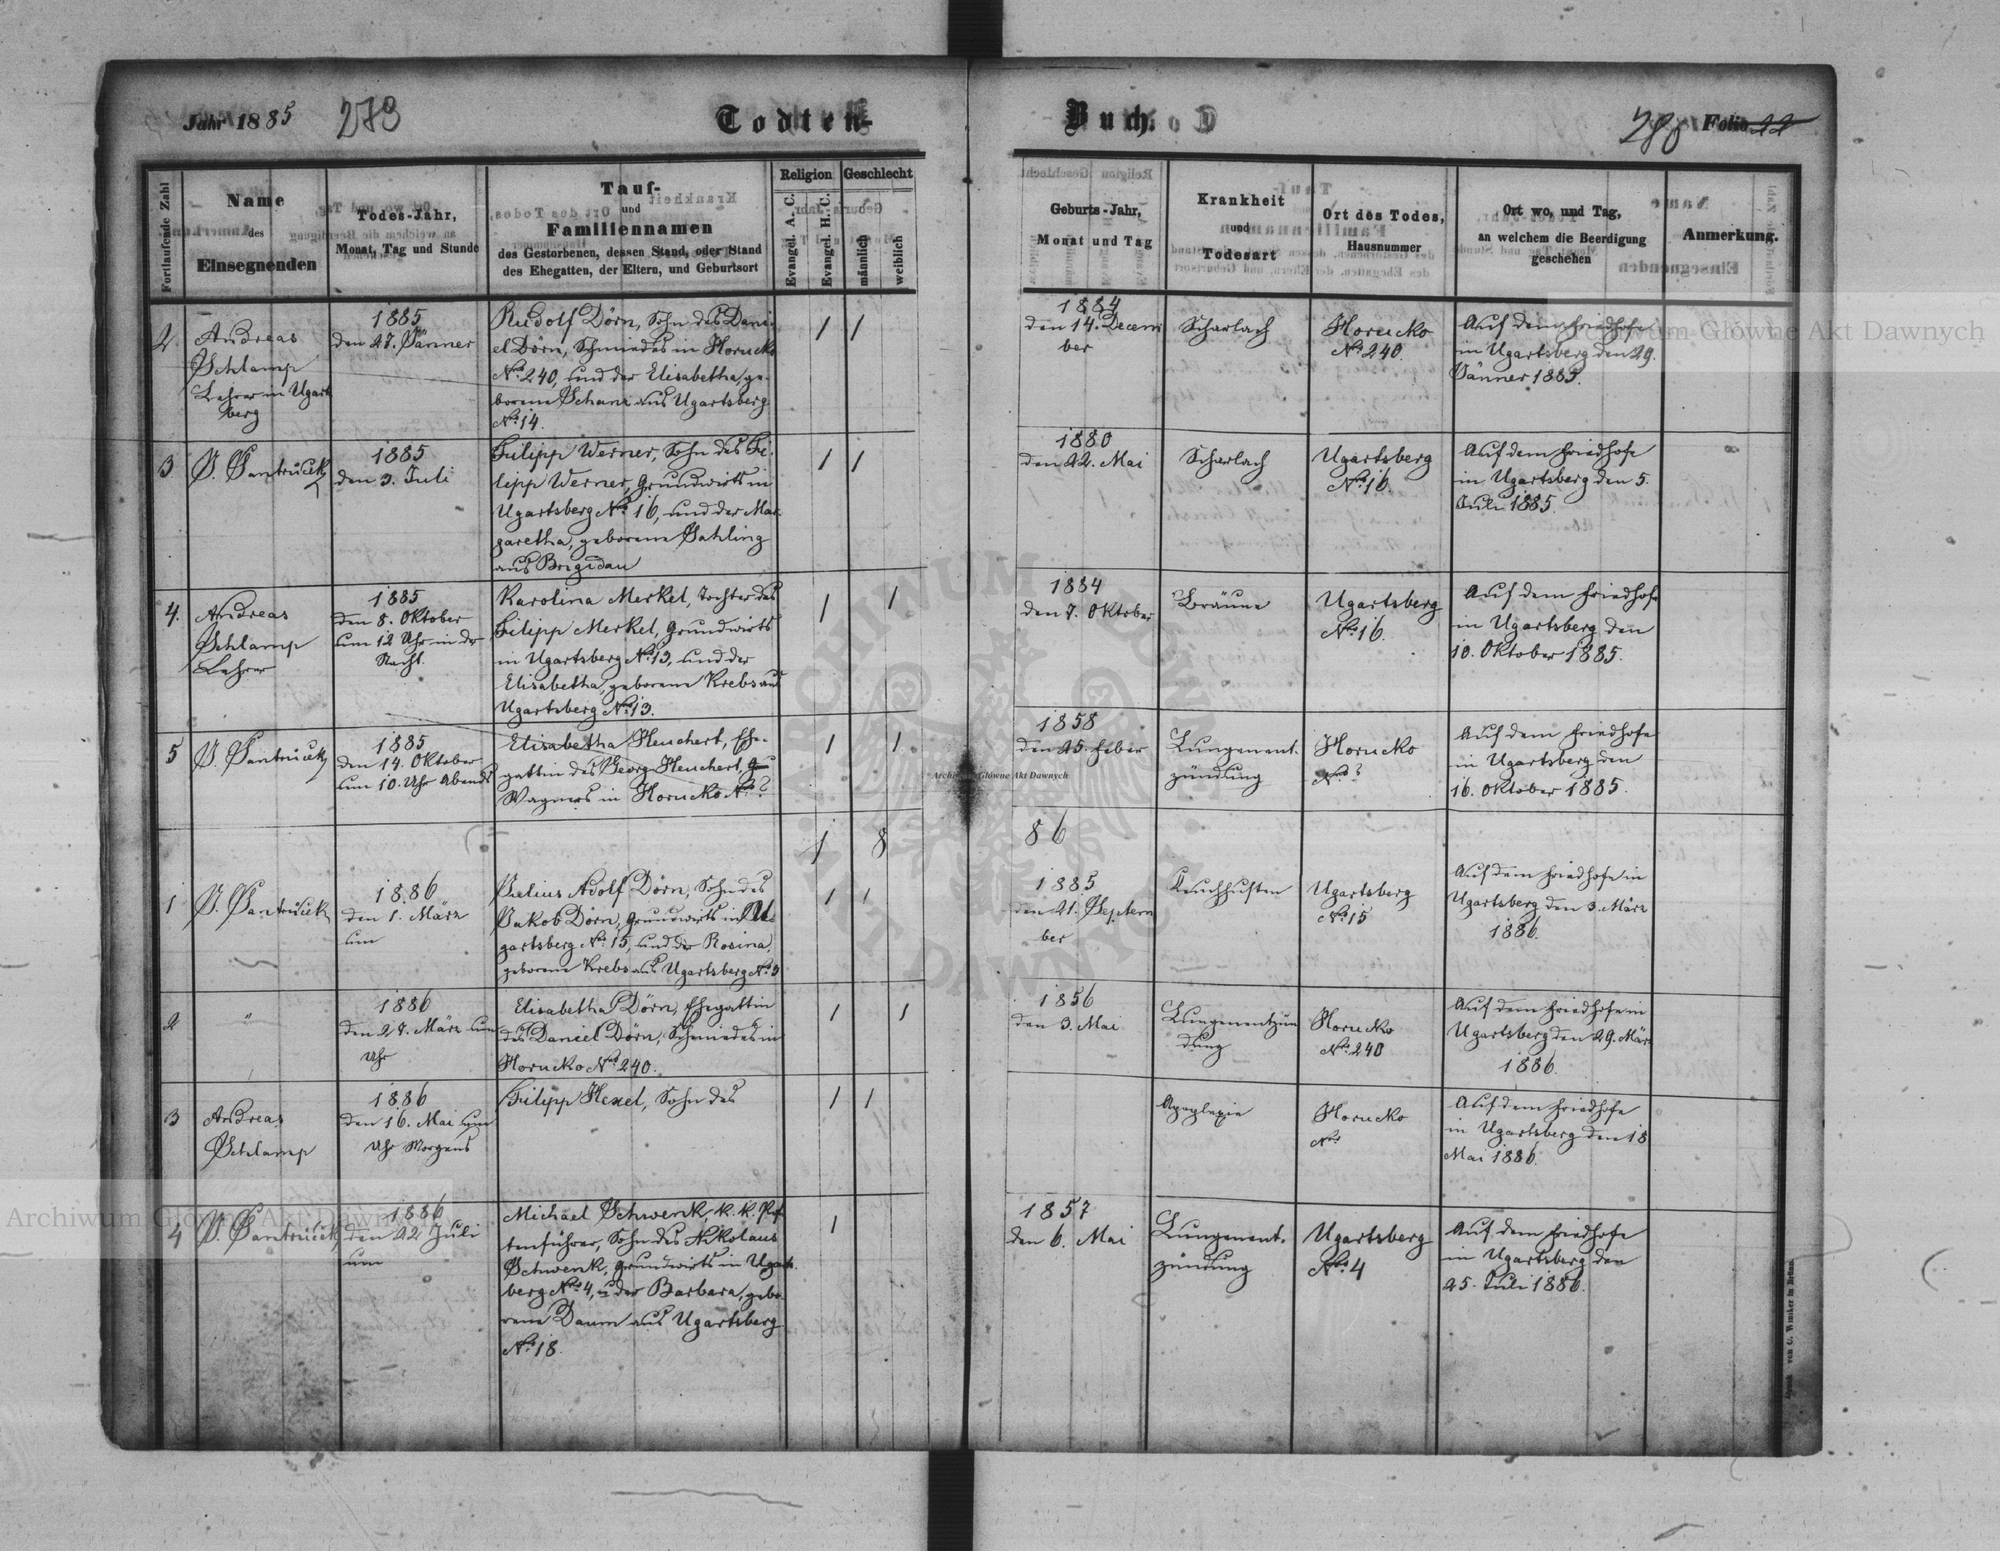 Jahr 1885
279
Todten-
Buch.
280
Folio 22
Fortlaufende Zahl
Name
des
Einsegnenden
Todes-Jahr,
Monat, Tag und Stunde
Tauf-
und
Familiennamen
des Gestorbenen, dessen Stand, oder Stand
des Ehegatten, der Eltern, und Geburtsort
Religion
Evangel. A. C.
Evangel. H. C.
Geschlecht
männlich
weiblich
Geburts-Jahr,
Monat und Tag
Krankheit
und
Todesart
Ort des Todes,
Hausnummer
Ort wo, und Tag,
an welchem die Beerdigung
geschehen
Anmerkung.
2
Andreas
Schlamp
Lehrer in Ugarts
berg
1885
den 27. Jänner
Rudolf Dörn, Sohn des Dani-
el Dörn, Schmiedes in Horucko
No 240, und der Elisabetha, ge-
borene Schanz aus Ugartsberg
No 14.
/ /
1884
den 14. Decem
ber
Scharlach
Horucko
No 240.
Auf dem Friedhofe
in Ugartsberg den 29.
Jänner 1885.
3
J. Jantrucek
1885
den 3. Juli
Filipp Werner, Sohn des Fi-
lipp Werner, Grundwirts in
Ugartsberg No 16, und der Mar-
garetha, geborene Sahling
aus Brigidau
/ /
1880
den 22. Mai
Scharlach
Ugartsberg
No 16.
Auf dem Friedhofe
in Ugartsberg den 5.
Juli 1885.
4.
Andreas
Schlamp
Lehrer
1885
den 8. Oktober
um 12 Uhr in der
Nacht.
Karolina Merkel, Tochter des
Filipp Merkel, Grundwirts
in Ugartsberg No 13, und der
Elisabetha, geborene Krebs aus
Ugartsberg No 13.
/ /
1884
den 7. Oktober
Bräune
Ugartsberg
No 16.
Auf dem Friedhofe
in Ugartsberg den
10. Oktober 1885.
5
J. Jantrucek
1885
den 14. Oktober
um 10. Uhr Abends
Elisabetha Heuchert, Ehe-
gattin des Georg Heuchert,
Wagners in Horucko No ?
/ /
1858
den 25. Feber
Lungenent-
zündung
Horucko
No ?
Auf dem Friedhofe
in Ugartsberg den
16. Oktober 1885.
/ 8
86
1
J. Jantrucek
1886
den 1. März
um
Julius Adolf Dörn, Sohn des
Jakob Dörn, Grundwirts in U-
gartsberg No 15, und der Rosina
geborene Krebs aus Ugartsberg No 3
/ /
1885
den 21. Septem
ber
Keuchhusten
Ugartsberg
No 15
Auf dem Friedhofe in
Ugartsberg den 3. März
1886.
2
"
1886
den 27. März um
Uhr
Elisabetha Dörn, Ehegattin
des Daniel Dörn, Schmiedes in
Horucko No 240.
/ /
1856
den 3. Mai
Lungenentzün
dung
Horucko
No 240
Auf dem Friedhofe in
Ugartsberg den 29. März
1886.
3
Andreas
Schlamp
1886
den 16. Mai um
Uhr Morgens
Filipp Hexel, Sohn des
/ /
Apoplexie
Horucko
No
Auf dem Friedhofe
in Ugartsberg den 18
Mai 1886.
4
J. Jantrucek
1886
den 22. Juli
um
Michael Schwenk, k. k. Pat
tenführer, Sohn des Nikolaus
Schwenk, Grundwirts in Ugarts-
berg No 4, u der Barbara, gebo-
rene Daum aus Ugartsberg
No 18.
/
1857
den 6. Mai
Lungenent-
zündung
Ugartsberg
No 4
Auf dem Friedhofe
in Ugartsberg den
25. Juli 1886.
Archiwum Główne Akt Dawnych
Archiwum Główne Akt Dawnych
Archiwum Główne Akt Dawnych
ARCHIWUM GŁÓWNE AKT DAWNYCH
von C. Winiker in Brünn.